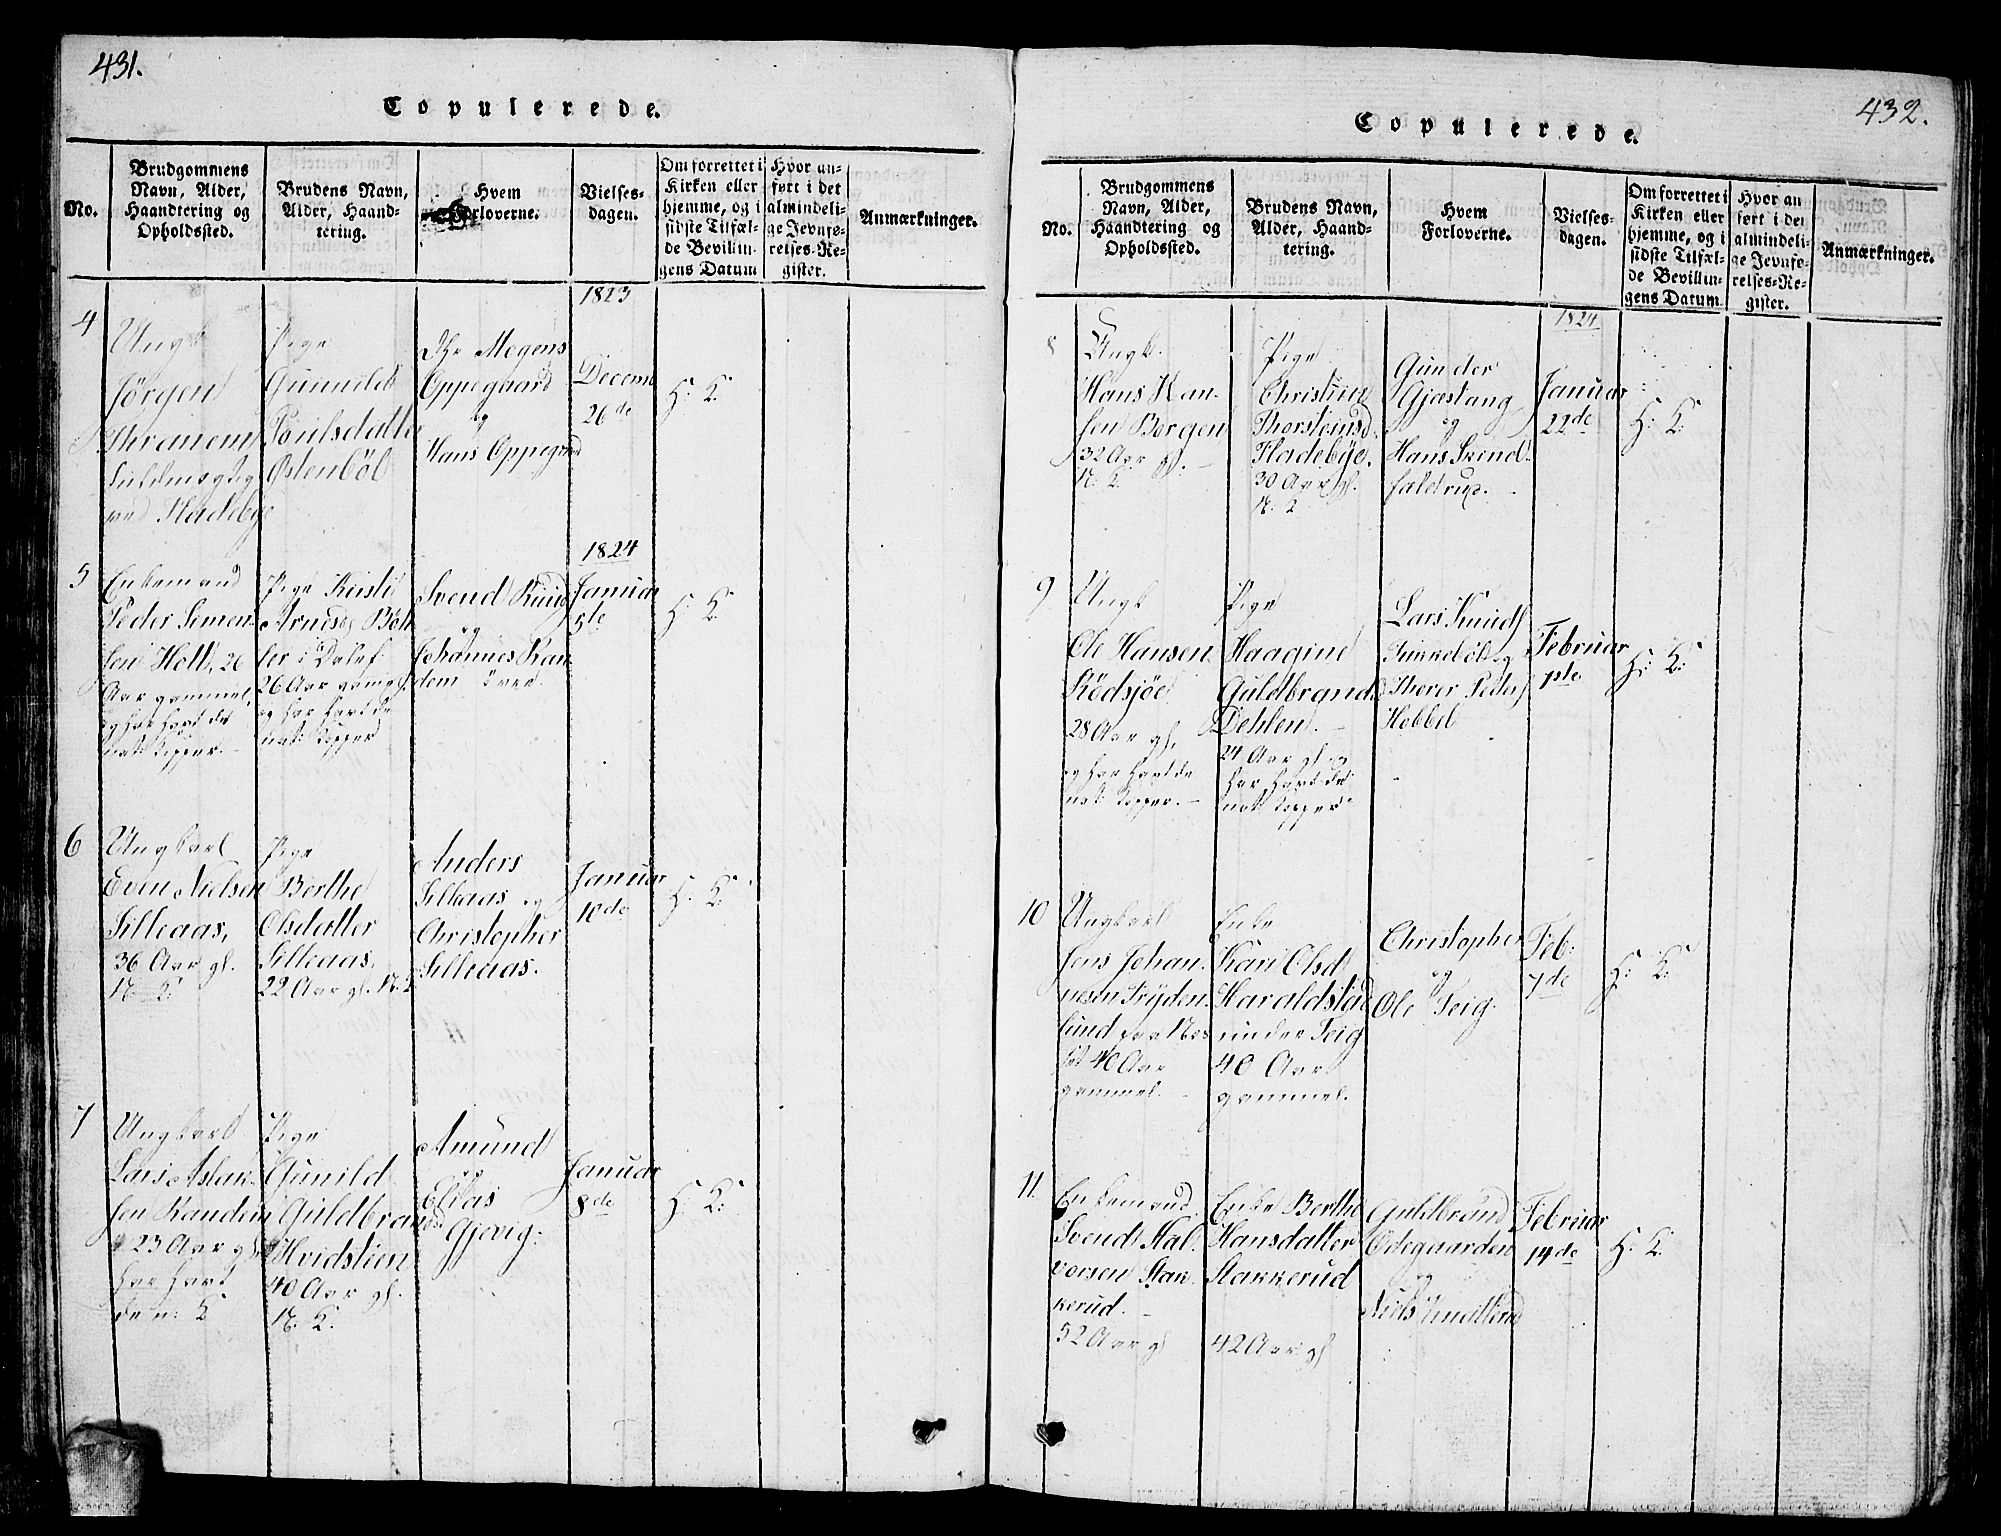 431.
Copulerede.
No.
Brudgommens
Navn, Alder,
Haandtering og
Opholdssted.
Brudens Navn,
Alder, Haand-
tering.
Hvem
Forloverne.
Vielses-
dagen.
Om forrettet i
Kirken eller
hjemme, og i
sidste Tilfæl-
de Bevillin-
gens Datum
Hvor an-
ført i det
almindeli-
ge Jevnfø-
relses-Re-
gister.
Anmærkninger.
1823
4
Ungk
Jörgen
Thranem
ved Hadebye
Pige
Gunnild
Poulsdatter
Ostenböl
Mogens
Oppegaard
og
Hans Oppegaard
Decem
26de
H: K.
1824
5
Enkemand
Peder Simen-
sen Holt, 26
Aar gammel,
og har havt de
nat: Kopper.
Pige Kirsti
Arnesd Böh
ser i Dalef
26 Aar gamel
og har havt de
nat: Kopper
Svend Ruud
og
Johannes Ran
dem övre
Januar
5te
H: K.
6
Ungkarl
Even Nielsen
Silleaas,
36 Aar gl.
N. K.
Pige
Berthe
Olsdatter
Silleaas.
22 Aar gl. N. K
Anders
Silleaas og
Christopher
Silleaas.
Januar
10de
H: K.
7
Ungkarl
Lars Aslak-
sen Randem
23 Aar gl.
har havt
de n: K
Pige
Gunild
Guldbrandsd
Hvidstien
40 Aar gl.
N. K.
Amund
og
Elias
Gjevig.
Januar
8de
H: K:
432.
Copulerede.
No.
Brudgommens
Navn, Alder,
Haandtering og
Opholdssted.
Brudens Navn,
Alder, Haand-
tering.
Hvem
Forloverne.
Vielses-
dagen.
Om forrettet i
Kirken eller
hjemme, og i
sidste Tilfæl-
de Bevillin-
gens Datum.
Hvor an
ført i det
almindeli-
ge Jevnfø-
relses-Re-
gister.
Anmærkninger.
1824
8
Ungk.
Hans Han-
sen Borgen
32 Aar gl.
N. K.
Pige
Christine
Thorsteinsd.
Hadebye.
30 Aar gl.
N. K
Gunder
Gjæstang
og
Hans Skind-
faldrud.
Januar
22de
H: K:
9
Ungk
Ole Hansen
Rödsjöe
28 Aar gl,
og har havt de
nat: Kopper.
Pige
Haagine
Guldbrandsd
Dehlen.
24 Aar gl og
har havt de
nat: Kopper
Lars Knuds
og
Therer Peders
Hebbel
Februar
1ste
H: K:
10
Ungkarl
Jens Johan-
nesen Fryden-
lund paa Nes
40 Aar
gammel.
Enke
Kari Olsd
Haraldstad
under Teig
40 Aar
gammel.
Christopher
og
Ole Teig.
Feb:
7de
H: K.
11.
Enkemand
Svend Hal-
vorsen Stak-
kerud.
52 Aar gl
Enke Berthe
Hansdatter
Stakkerud
42 Aar gl
Guldbrand
Ödegaarden
og
Niels
Februar
14de
H: K.